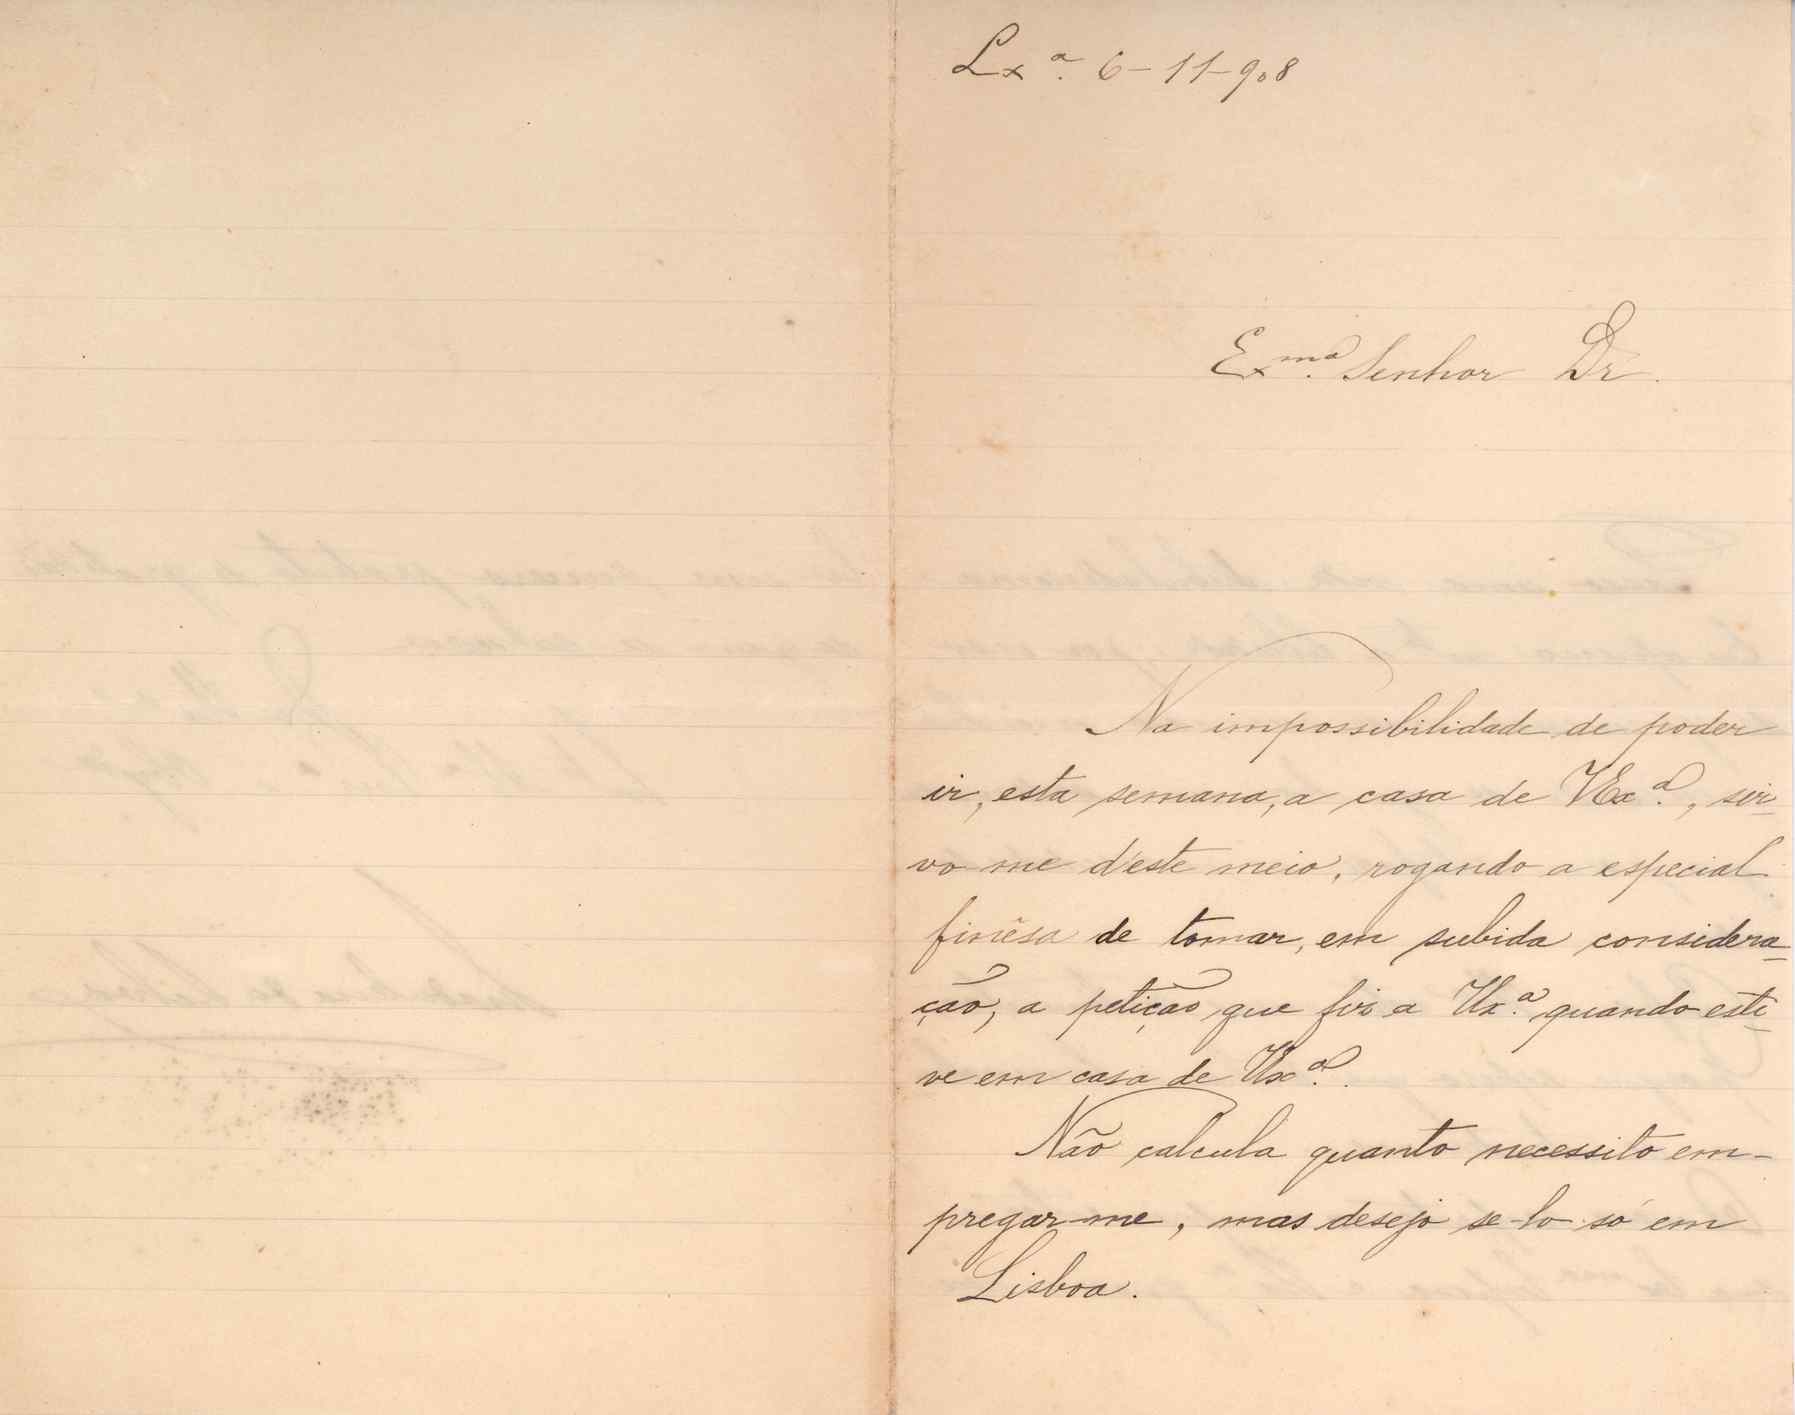 Lxª. 6-11-908
Exmo. Senhor Dr.
Na impossibilidade de poder
ir, esta semana, a casa de VExª., sir-
vo-me d'este meio, rogando a especial
finêsa de tomar, em subida considera-
ção, a petição que fiz a Vxª. quando esti-
ve em casa de Vxª.
Não calcula quanto necessito em-
pregar-me, mas desejo se-lo só em
Lisboa.